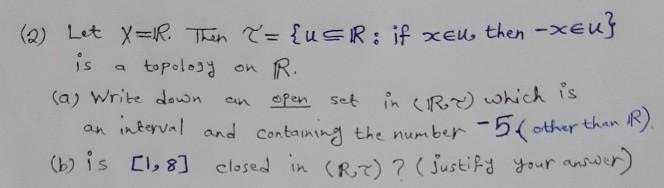 (2) Let X=ℝ. Then τ = {u⊆ℝ : if x∈u, then -x∈u}
is a topology on ℝ.
(a) Write down an open set in (ℝ,τ) which is
an interval and containing the number -5 (other than ℝ).
(b) is [1,8] closed in (ℝ,τ) ? (justify your answer)